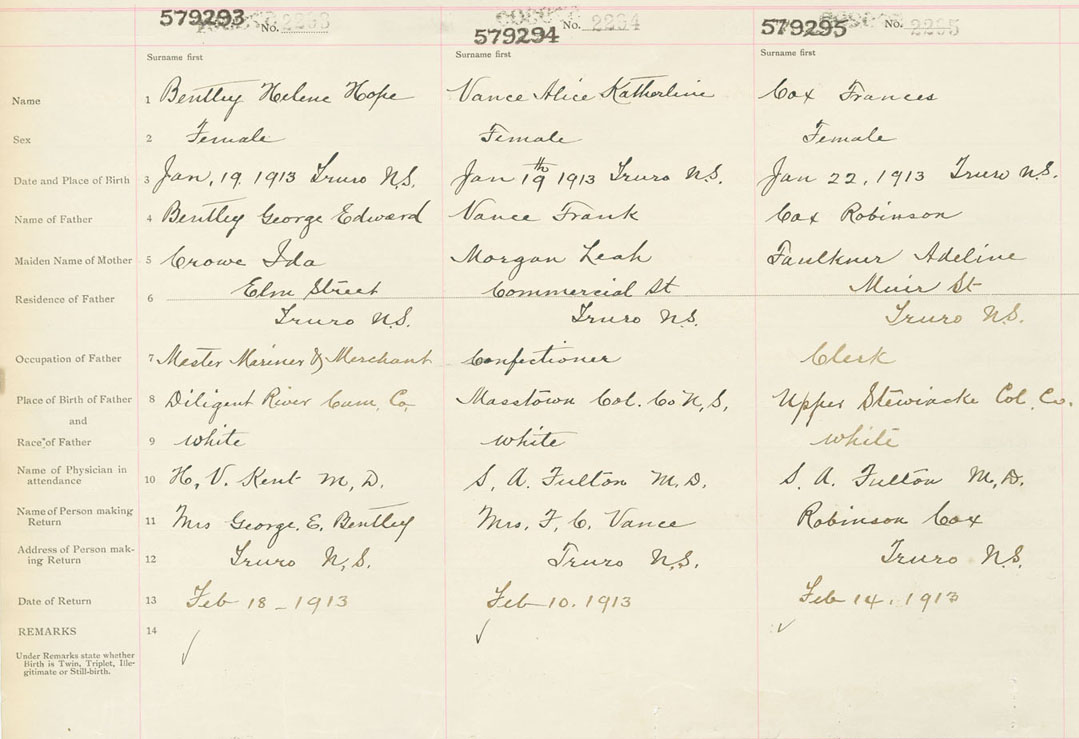 579293 No. 2293 579294 No. 2294 579295 No. 2295
Surname first Surname first Surname first
Name 1 Bentley Helene Hope Vance Alice Katherline Cox Frances
Sex 2 Female Female Female
Date and Place of Birth 3 Jan, 19. 1913 Truro N.S. Jan 19th 1913 Truro N.S. Jan 22, 1913 Truro N.S.
Name of Father 4 Bentley George Edward Vance Frank Cox Robinson
Maiden Name of Mother 5 Crowe Ida Morgan Leah Faulkner Adeline
Residence of Father 6 Elm Street Commercial St Muir St
Truro N.S. Truro N.S. Truro N.S.
Occupation of Father 7 Master Mariner & Merchant Confectioner Clerk
Place of Birth of Father 8 Diligent River Cum. Co, Masstown Col. Co N,S, Upper Stewiacke Col. Co.
and
Race of Father 9 white white white
Name of Physician in
attendance 10 H, V. Kent M, D. S, A. Fulton M.D. S. A. Fulton M, D.
Name of Person making
Return 11 Mrs George. E. Bentley Mrs. F, C. Vance Robinson Cox
Address of Person mak-
ing Return 12 Truro N,S. Truro N.S. Truro N.S.
Date of Return 13 Feb 18 - 1913 Feb 10. 1913 Feb 14. 1913
REMARKS 14
Under Remarks state whether
Birth is Twin, Triplet, Ille-
gitimate or Still-birth.